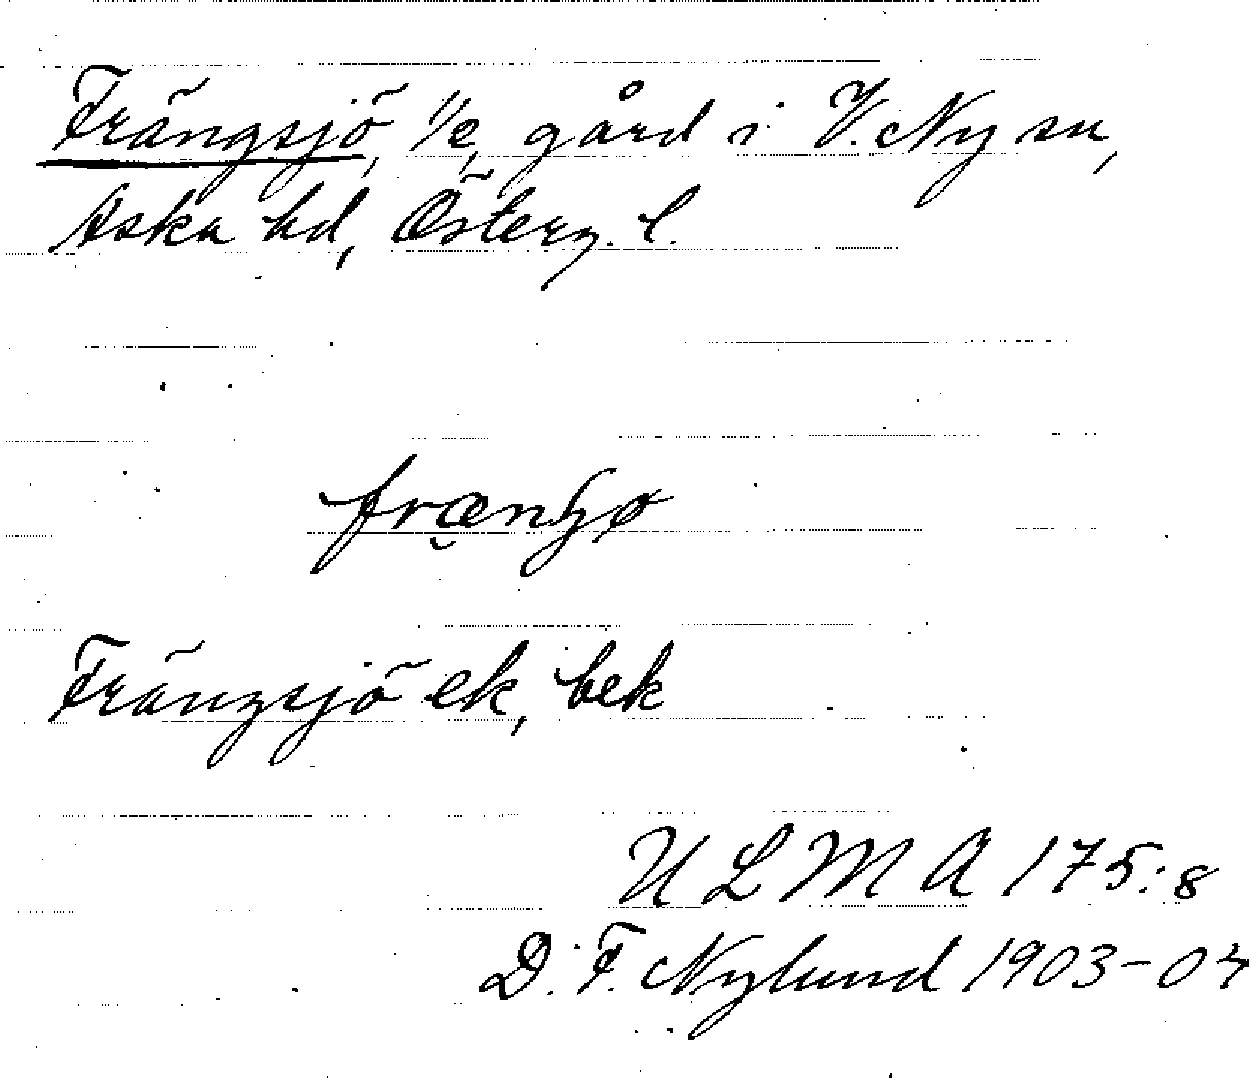 Frängsjö, 1/2, gård i V. Ny sn,
Aska hd, Österg. l.
Frängsjö ek, bek
U L M A 175:8
D. F. Nylund 1903-04